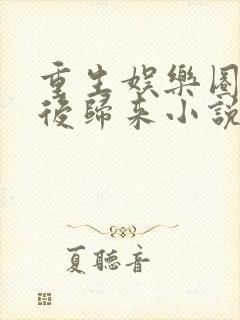 重生娛樂圈
後歸來小說
夏聽音